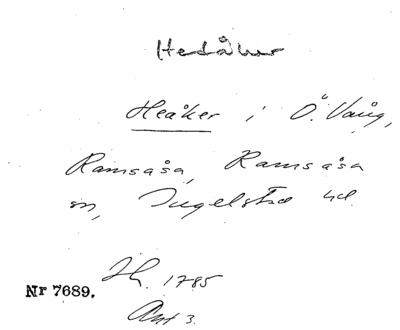 Hedåker
Heåker i Ö. Vång,
Ramsåsa, Ramsåsa
sn, Ingelstad hd.
Sk. 1785
Nr 7689.
Akt 3.